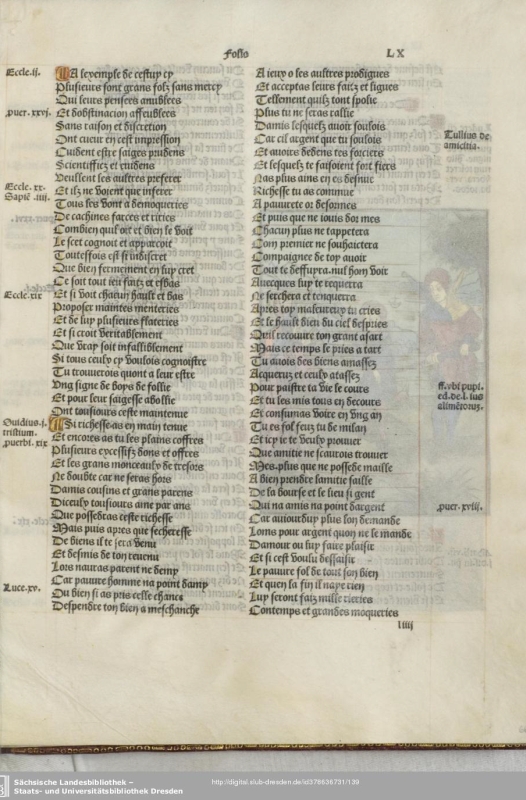 Folio LX
Eccle.ij.
A lexemple de cestuy cy
Plusieurs sont grans folz sans mercy
Qui leurs pensees anublees
puer.xxvj.
Et dobstinacion affeublees
Sans raison et discretion
Ont cueur en cest impression
Cuident estre saiges prudens
Scientifficz et euidens
Veullent les aultres preferer
Eccle.xx.
Et ilz ne voient que inferer
Sapie.iiij.
Tous les vont a demoqueries
De cachines farces et rities
Combien quil oit et bien le voit
Le scet cognoit et apparcoit
Toutessois est si indiscret
Que bien fermement en luy cret
Ce soit tout ieu faitz et esbas
Eccle.xix
Et si voit chascun hault et bas
Proposer maintes menteries
Et de luy plusieurs flateries
Et si croit veritablement
Que vray soit infalliblement
Si tous ceulx cy voulois cognoistre
Tu trouuerois quont a leur estre
Ung signe de boys de follie
Et pour leur saigesse abollie
Ont tousiours ceste maintenue
Ouidius.j.
Si richesse as en main tenue
tristium.
Et encores as tu les plains coffres
puerbi.xix
Plusieurs excessifz dons et offres
Et les grans monceaulx de tresors
Ne doubte car ne seras hors
Damis cousins et grans parens
Diceulx tousiours aime par ans
Que possedras ceste richesse
Mais puis apres que secheresse
De biens il te sera venu
Et desmis de ton reuenu
Lors nauras parent ne demy
Luce.xv.
Car pauure homme na point damy
Ou bien si as pris celle chance
Despendre ton bien a meschanche
A ieux o les aultres prodigues
Et acceptas leurs faitz et ligues
Tellement quilz tont spolie
Plus tu ne seras rallie
Damis lesquelz auoir soulois
Tullius de
Car cil argent que tu soulois
amicitia.
Et auoirs dedens tes forciers
Et lesquelz te faisoient fort fiers
Nas plus ains en es desnue
Richesse tu as commue
A pauurete or desormes
Et puis que ne iouis dor mes
Chacun plus ne tappetera
Com premier ne souhaictera
Compaignee de toy auoir
Tout te deffuyra. nul hom voir
Auecques luy te requerra
Ne serchera et tenquerra
Apres toy maleureux tu cries
Et le hault dieu du ciel despries
Quil recouure ton grant asart
Mais ce temps le pries a tart
Tu auois des biens amassez
ff.vbi pupi.
Acqeruz et ceulx atassez
ed.de.l. ius
Pour paistre ta vie le cours
alimetorum.
Et tu les mis tous en decours
Et consumas voire en vng an
Tu es fol feuz tu de milan
Et icy ie te veulx prouuer
Que amitie ne scaurois trouuer
Mes.plus que ne possede maille
A bien prendre lamitie faille
De la bourse et le lieu si gent
puer.xviij.
Qui na amis na point dargent
Car auiourduy plus lon demande
Loms pour argent quon ne le mande
Damour ou luy faire plaisir
Et si cest voulu dessaisir
Le pauure fol de tout son bien
Et quen la fin il naye rien
Luy seront faiz mille rieries
Contemps et grandes moqueries
liiij
Sächsische Landesbibliothek –
Staats- und Universitätsbibliothek Dresden
http://digital.slub-dresden.de/id378636731/139